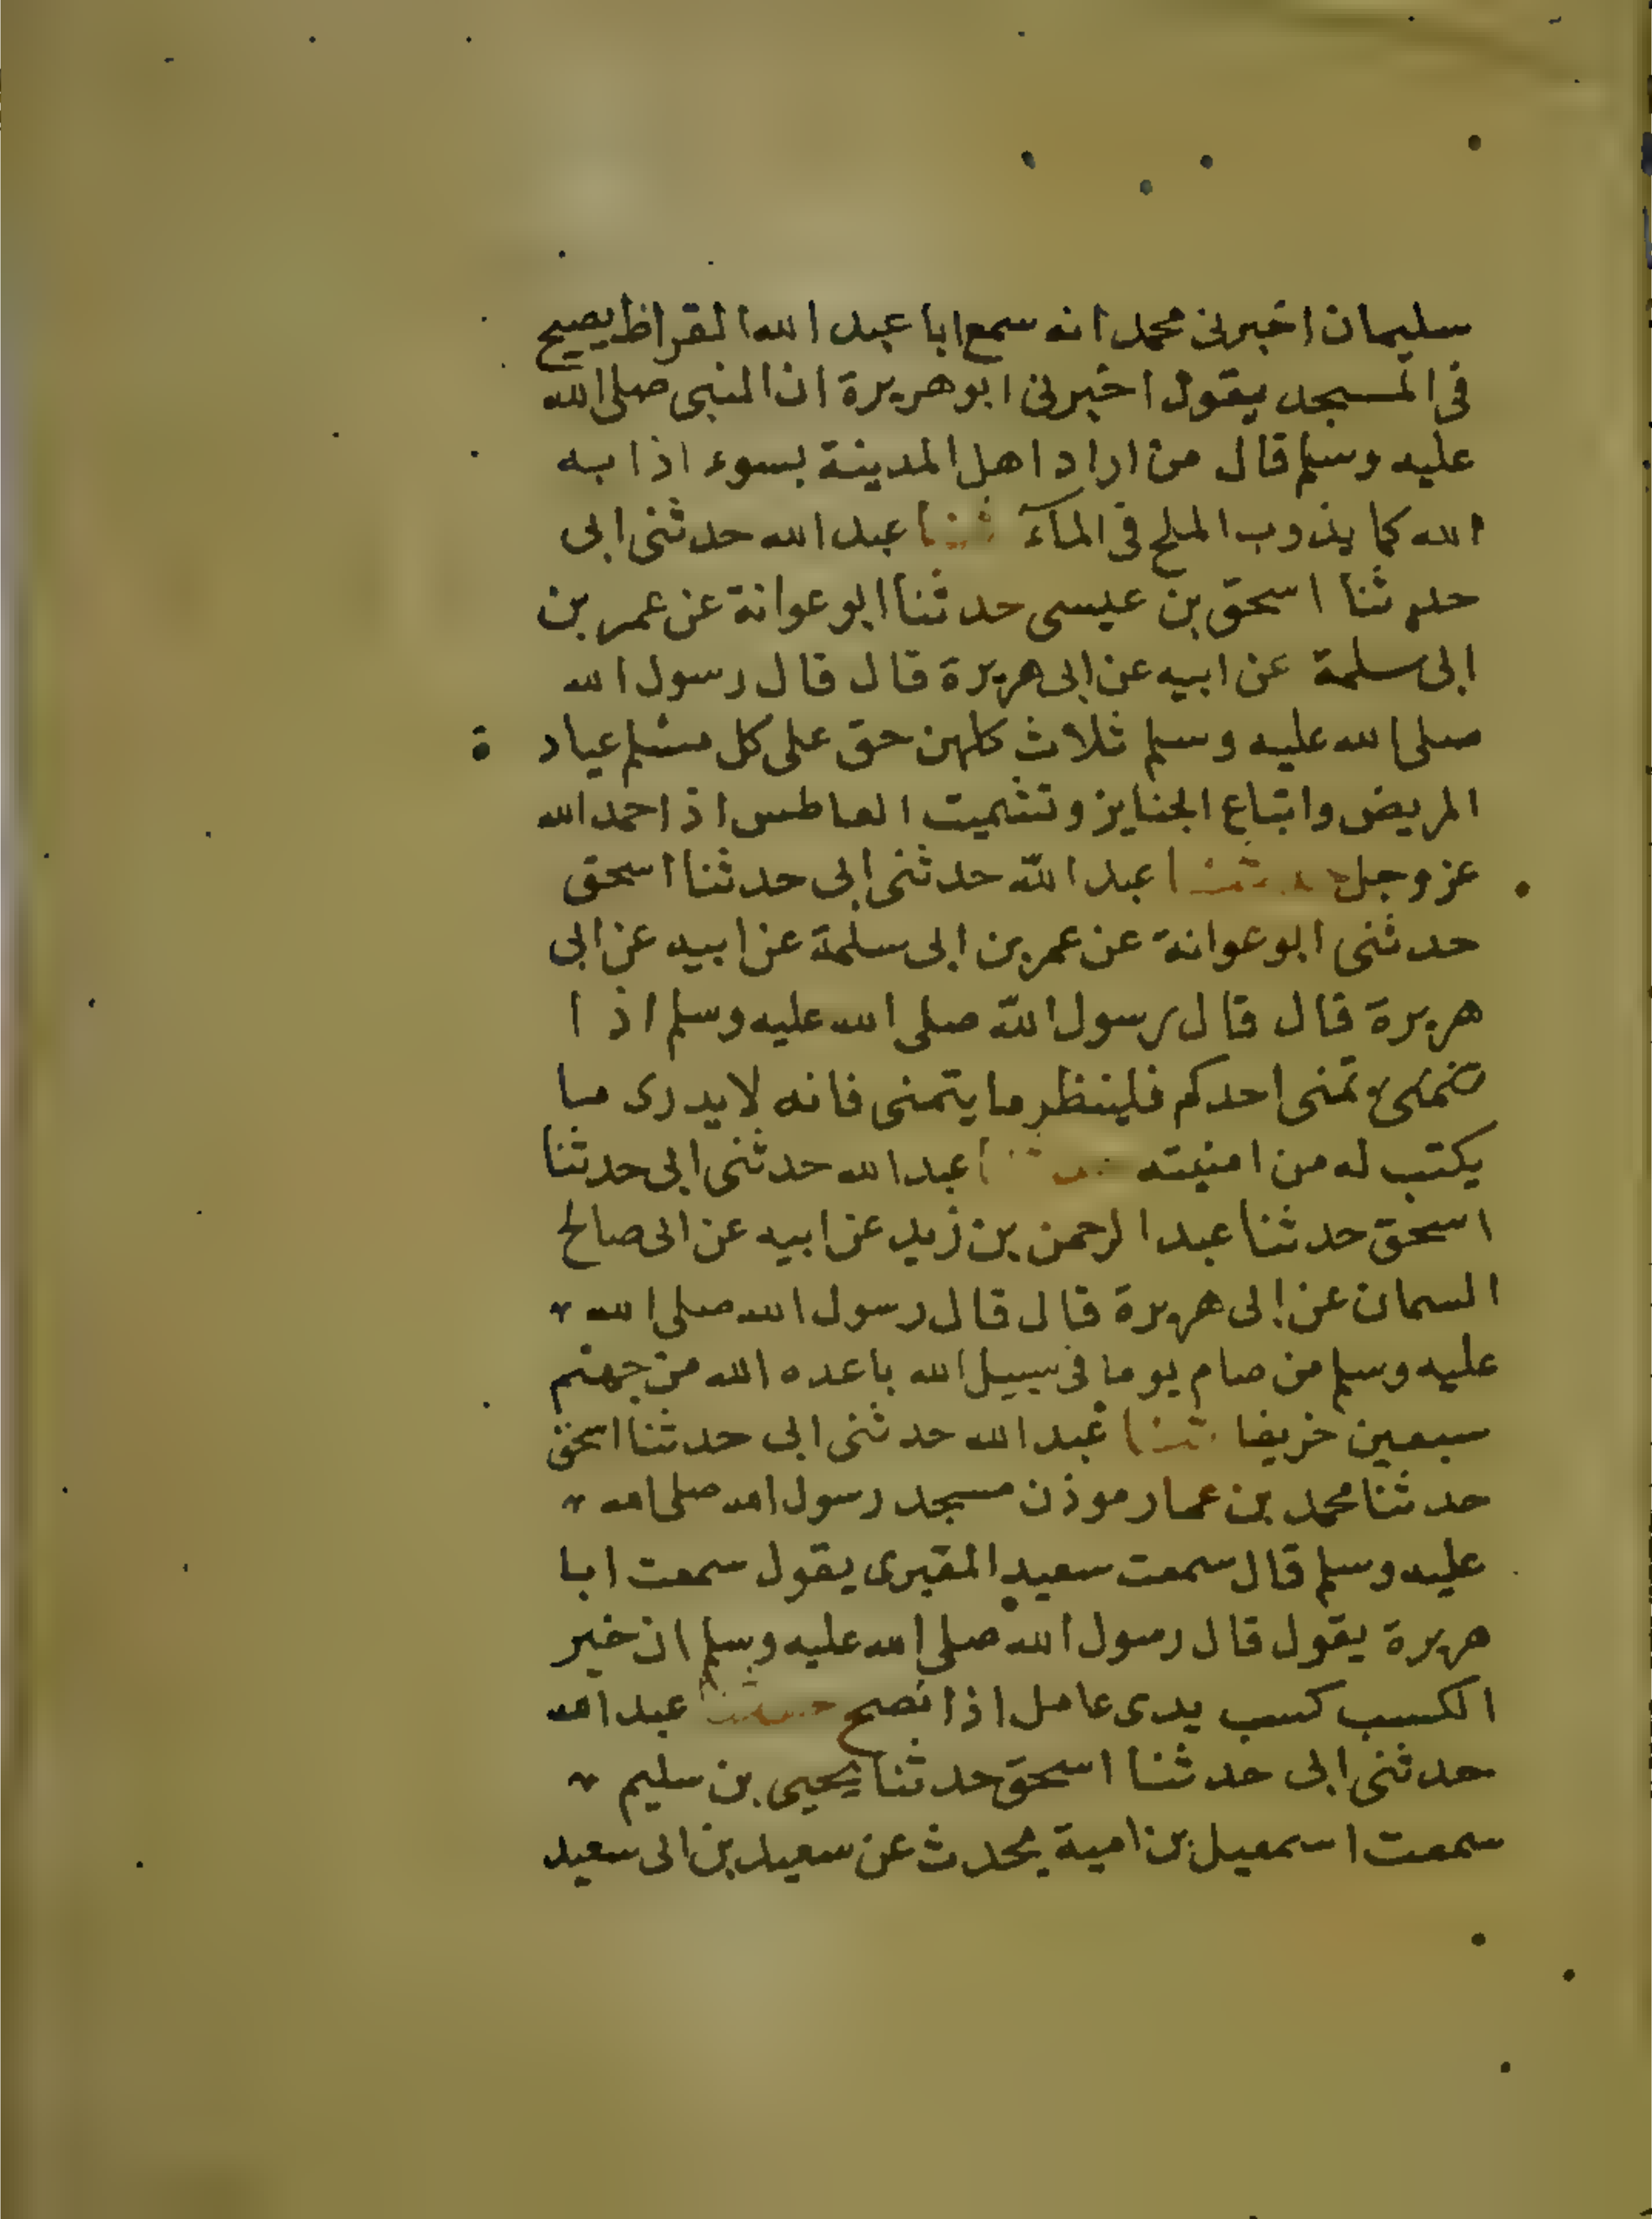 سليمان اخبرنى محمد انه سمع ابا عبد الله القراظ يصيح
فى المسجد يقول اخبرنى ابو هريرة ان النبى صلى الله
عليه وسلم قال من اراد اهل المدينة بسوء اذابه
الله كما يذوب الملح فى المآء ثنا عبد الله حدثنى ابى
حدثنا اسحق بن عيسى حدثنا ابو عوانة عن عمر بن
ابى سلمة عن ابيه عن ابى هريرة قال قال رسول الله
صلى الله عليه وسلم ثلاث كلهن حق على كل مسلم عيادة
المريض واتباع الجنايز وتشميت العاطس اذا حمد الله
عز وجل حدثنا عبد الله حدثنى ابى حدثنا اسحق
حدثنى ابو عوانة عن عمر بن ابى سلمة عن ابيه عن ابى
هريرة قال قال رسول الله صلى الله عليه وسلم اذا
تمنى احدكم فلينظر ما يتمنى فانه لا يدرى ما
يكتب له من امنيته حدثنا عبد الله حدثنى ابى حدثنا
اسحق حدثنا عبد الرحمن بن زيد عن ابيه عن ابى صالح
السمان عن ابى هريرة قال قال رسول الله صلى الله
عليه وسلم من صام يوما فى سبيل الله باعده الله من جهنم
سبعين خريفا ثنا عبد الله حدثنى ابى حدثنا اسحق
حدثنا محمد بن عمار موذن مسجد رسول الله صلى الله
عليه وسلم قال سمعت سعيد المقبرى يقول سمعت ابا
هريرة يقول قال رسول الله صلى الله عليه وسلم ان خير
الكسب كسب يدى عامل اذا نصح حدثنا عبد الله
حدثنى ابى حدثنا اسحق حدثنا يحيى بن سليم
سمعت اسمعيل بن امية يحدث عن سعيد بن ابى سعيد